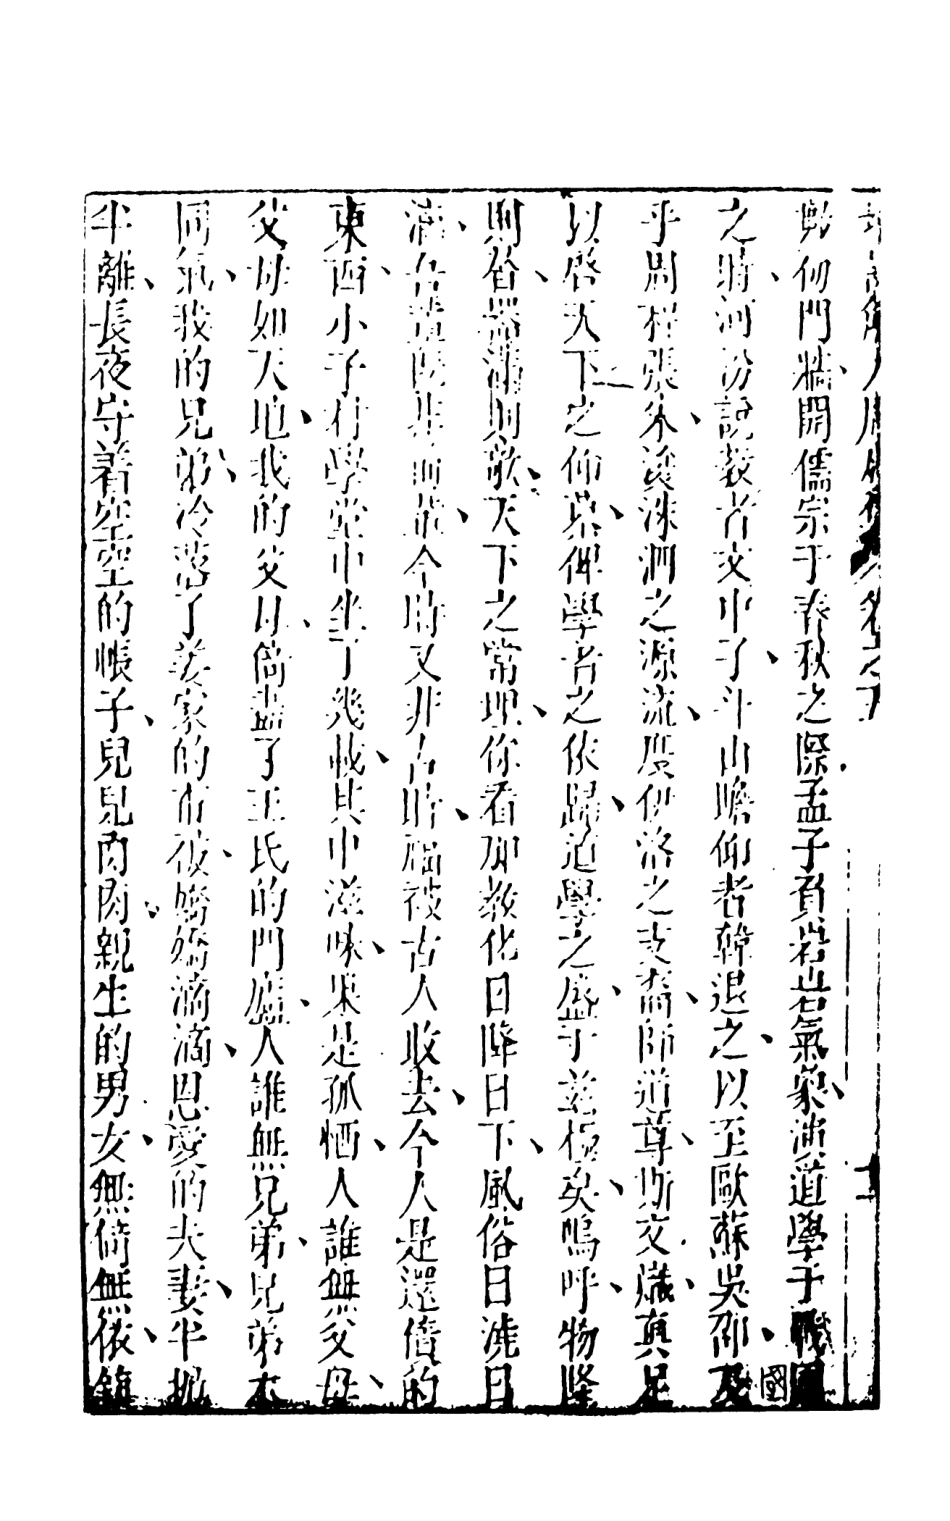 仞門牆開儒宗于春秋之際孟子負岩岩氣象演道學于戰國
之時河汾說教者文中子斗山瞻仰者韓退之以至歐蘇吳邵及
乎周程張朱浚洙泗之源流度伊洛之支裔師道尊斯文熾真足
以啓天下之仰慕俾學者之依歸道學之盛于玆極矣嗚呼物隆
則省器滿則欹天下之常理你看那教化日降日下風俗日澆日
漓古昔既非前輩今時又非古時福被古人收去今人是還債的
東西小子付學堂中坐了幾載其中滋味果是孤恓人誰無父母
父母如天地我的父母倚盡了王氏的門廬人誰無兄弟兄弟本
同氣我的兄弟冷落了姜家的布被嬌嬌滴滴恩愛的夫妻半拋
半離長夜守着空空的帳子兒兒肉肉親生的男女無倚無依鎮
國